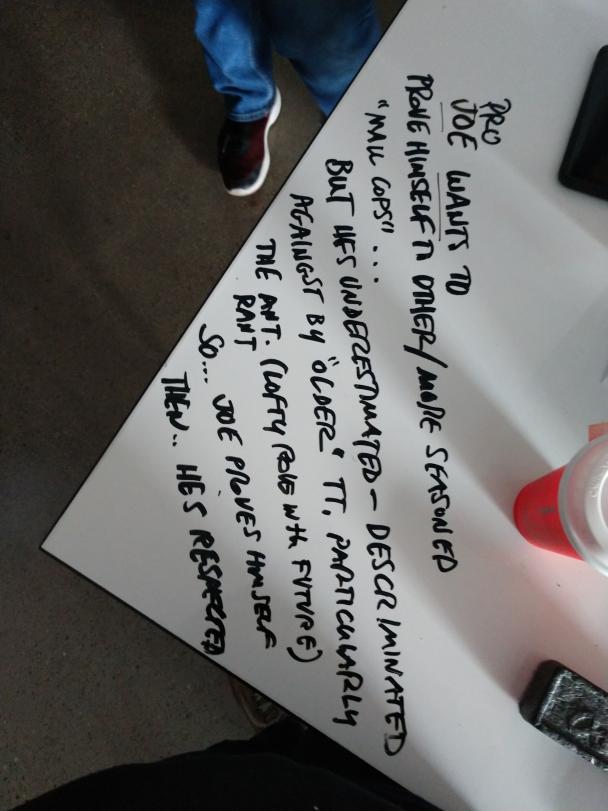 PRO
JOE WANTS TO
PROVE HIMSELF TO OTHER/MORE SEASONED
"MALL COPS"...
BUT HES UNDERESTIMATED - DESCRIMINATED
AGAINGST BY "OLDER" TT, PARTICULARLY
THE ANT. (LOFTY ROLE WITH FUTURE)
RANT
SO.... JOE PROVES HIMSELF
THEN.. HE'S RESPECTED